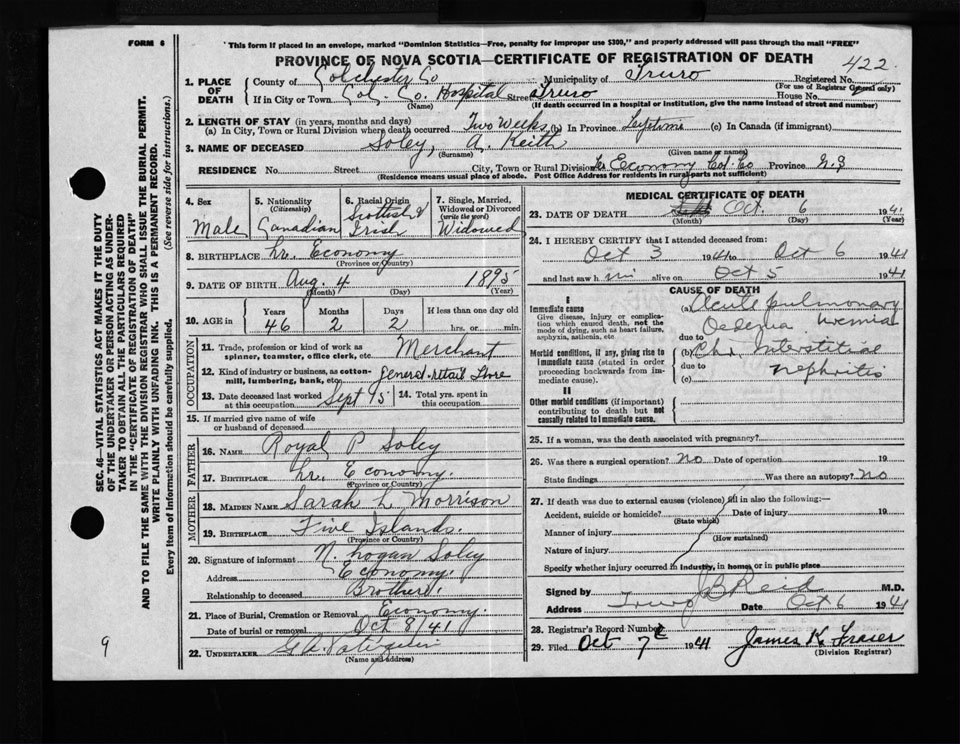 FORM 6
"This form if placed in an envelope, marked "Dominion Statistics—Free, penalty for improper use $300," and properly addressed will pass through the mail "FREE"
PROVINCE OF NOVA SCOTIA—CERTIFICATE OF REGISTRATION OF DEATH
422
1. PLACE OF DEATH
County of Colchester Co Municipality of Truro Registered No.
(For use of Registrar General only)
If in City or Town Col. Co. Hospital Street Truro House No.
(Name) (If death occurred in a hospital or institution, give the name instead of street and number)
2. LENGTH OF STAY (in years, months and days)
(a) In City, Town or Rural Division where death occurred Two Weeks (b) In Province Lifetime (c) In Canada (if immigrant)
3. NAME OF DECEASED Soley, A. Keith
(Surname) (Given name or names)
RESIDENCE No. Street City, Town or Rural Division Lr. Economy Col. Co Province N.S
(Residence means usual place of abode. Post Office Address for residents in rural parts not sufficient)
4. Sex
Male
5. Nationality
(Citizenship)
Canadian
6. Racial Origin
Scottish &
Irish
7. Single, Married, Widowed or Divorced
(write the word)
Widowed
8. BIRTHPLACE Lr. Economy
(Province or Country)
9. DATE OF BIRTH Aug. 4 1895
(Month) (Day) (Year)
10. AGE in Years Months Days If less than one day old
46 2 2 hrs. or min.
OCCUPATION
11. Trade, profession or kind of work as spinner, teamster, office clerk, etc. Merchant
12. Kind of industry or business, as cotton-mill, lumbering, bank, etc. general retail Store
13. Date deceased last worked at this occupation Sept 15
14. Total yrs. spent in this occupation
15. If married give name of wife or husband of deceased
FATHER
16. NAME Royal P Soley
17. BIRTHPLACE Lr. Economy.
(Province or Country)
MOTHER
18. MAIDEN NAME Sarah L Morrison
19. BIRTHPLACE Five Islands.
(Province or Country)
20. Signature of informant N. Logan Soley
Address Economy.
Relationship to deceased Brother.
21. Place of Burial, Cremation or Removal Economy.
Date of burial or removal Oct 8/41
22. UNDERTAKER G A
(Name and address)
MEDICAL CERTIFICATE OF DEATH
23. DATE OF DEATH Oct. 6 1941
(Month) (Day) (Year)
24. I HEREBY CERTIFY that I attended deceased from:
Oct 3 1941 to Oct 6 1941
and last saw h im alive on Oct 5 1941
CAUSE OF DEATH
I
Immediate cause
Give disease, injury or complication which caused death, not the mode of dying, such as heart failure, asphyxia, asthenia, etc.
(a) Acute pulmonary
Oedema uremia
due to
Morbid conditions, if any, giving rise to immediate cause (stated in order proceeding backwards from immediate cause).
(b) Chr Interstitial
due to nephritis
(c)
II
Other morbid conditions (if important) contributing to death but not causally related to immediate cause.
25. If a woman, was the death associated with pregnancy?
26. Was there a surgical operation? No Date of operation 19
State findings Was there an autopsy? No
27. If death was due to external causes (violence) fill in also the following:—
Accident, suicide or homicide? Date of injury 19
(State which)
Manner of injury
(How sustained)
Nature of injury
Specify whether injury occurred in industry, in homes or in public place
Signed by J B Reid M.D.
Address Truro Date Oct 6 1941
28. Registrar's Record Number
29. Filed Oct 7th 1941 James K. Fraser
(Division Registrar)
SEC. 46—VITAL STATISTICS ACT MAKES IT THE DUTY
OF THE UNDERTAKER OR PERSON ACTING AS UNDER-
TAKER TO OBTAIN ALL THE PARTICULARS REQUIRED
IN THE "CERTIFICATE OF REGISTRATION OF DEATH"
AND TO FILE THE SAME WITH THE DIVISION REGISTRAR WHO SHALL ISSUE THE BURIAL PERMIT.
WRITE PLAINLY WITH UNFADING INK. THIS IS A PERMANENT RECORD.
Every item of information should be carefully supplied. (See reverse side for instructions.)
9